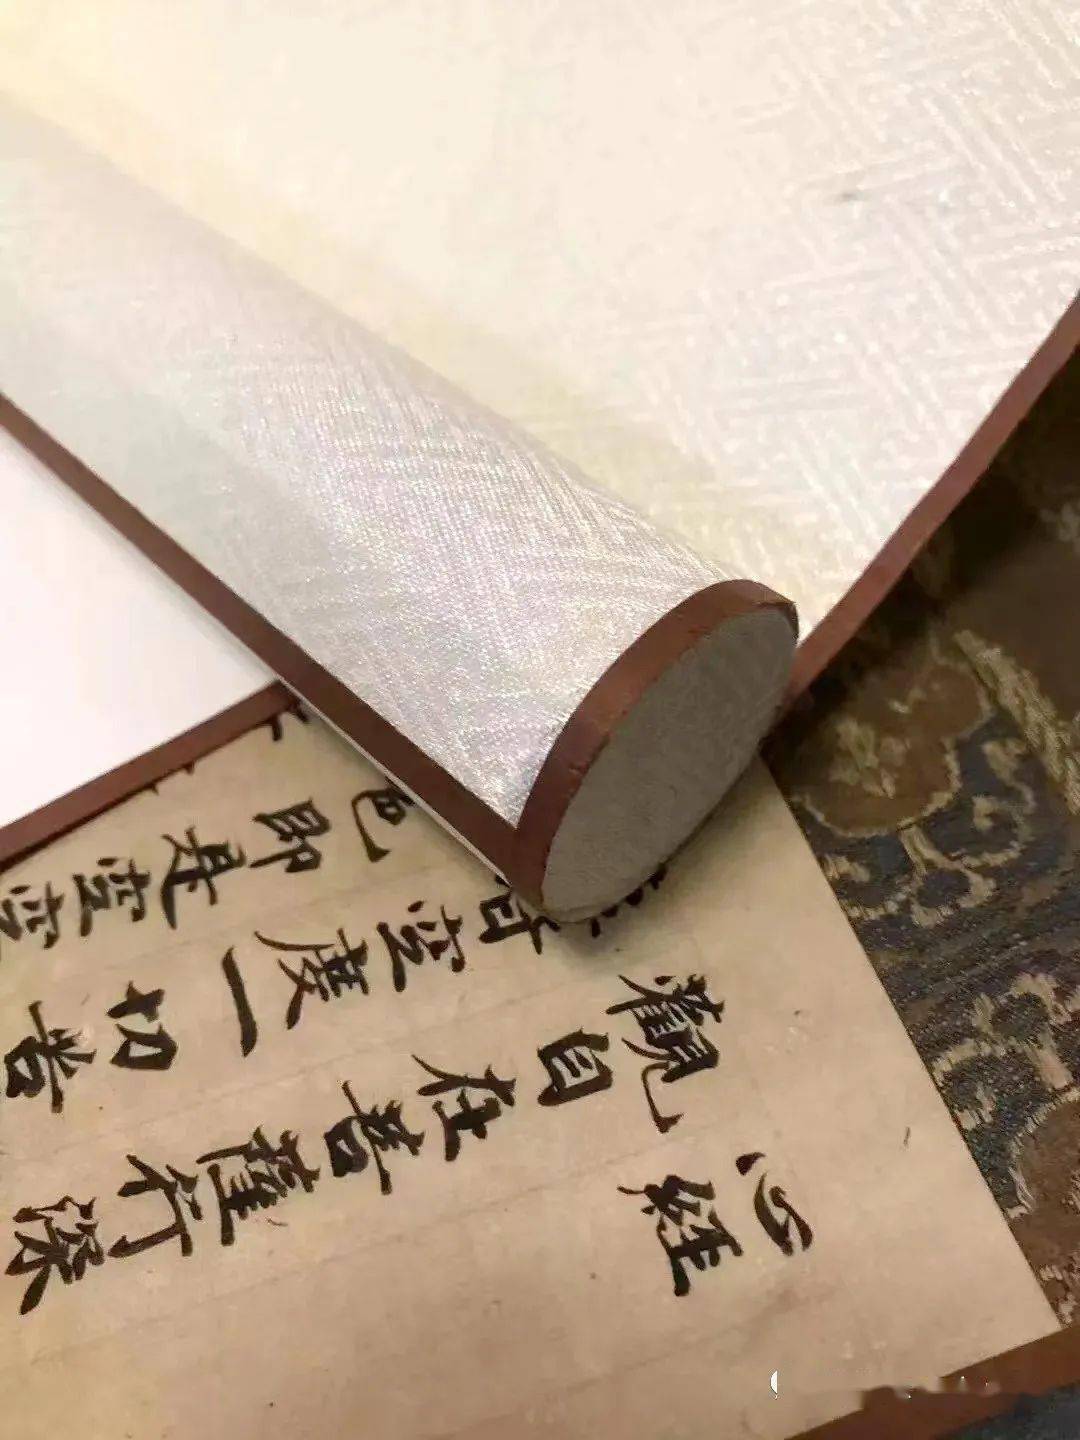 心經
觀自在菩薩行深
皆空度一切苦
色即是空空